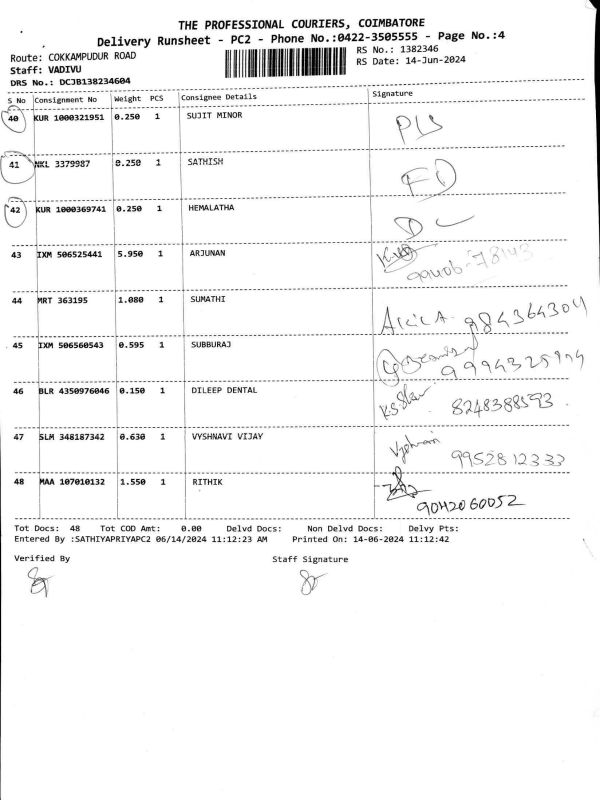 THE PROFESSIONAL COURIERS, COIMBATORE
Delivery Runsheet - PC2 - Phone No.:0422-3505555 - Page No.:4
Route: COKKAMPUDUR ROAD RS No.: 1382346
Staff: VADIVU RS Date: 14-Jun-2024
DRS No.: DCJB138234604
S No Consignment No Weight PCS Consignee Details Signature
40 KUR 1000321951 0.250 1 SUJIT MINOR
41 NKL 3379987 0.250 1 SATHISH
42 KUR 1000369741 0.250 1 HEMALATHA
43 IXM 506525441 5.950 1 ARJUNAN 99406-78143
44 MRT 363195 1.080 1 SUMATHI 984364304
45 IXM 506560543 0.595 1 SUBBURAJ
46 BLR 4350976046 0.150 1 DILEEP DENTAL 8248388593
47 SLM 348187342 0.630 1 VYSHNAVI VIJAY 9952812333
48 MAA 107010132 1.550 1 RITHIK 9042060052
Tot Docs: 48 Tot COD Amt: 0.00 Delvd Docs: Non Delvd Docs: Delvy Pts:
Entered By :SATHIYAPRIYAPC2 06/14/2024 11:12:23 AM Printed On: 14-06-2024 11:12:42
Verified By Staff Signature